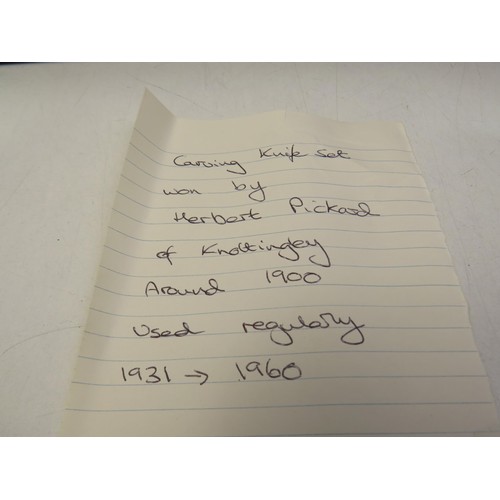 Carving Knife Set
won by
Herbert Pickard
of Knottingley
Around 1900
Used regularly
1931 → 1960